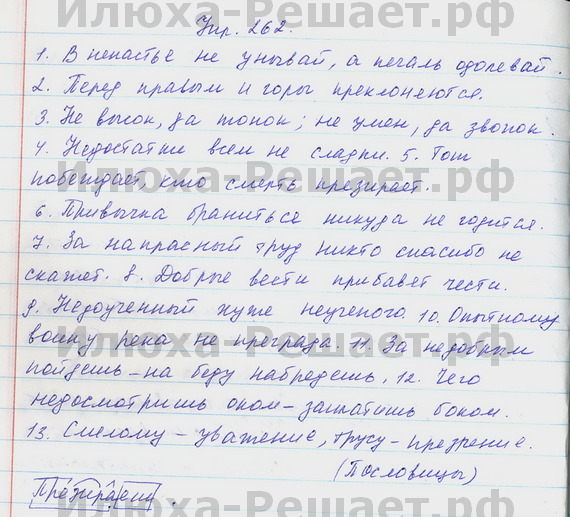 Илюха-Решает.рф
Упр. 262.
1. В ненастье не унывай, а печаль одолевай.
2. Перед правым и горы преклоняются.
3. Не высок, да тонок; не умен, да звонок.
4. Недостатки всем не сладки. 5. Тот
побеждает, кто смерть презирает.
6. Привычка браниться никуда не годится.
7. За напрасный труд никто спасибо не
скажет. 8. Добрые вести прибавят чести.
9. Недоученный хуже неученого. 10. Опытному
воину река не преграда. 11. За недобрым
пойдешь – на беду набредешь. 12. Чего
недосмотришь оком – заплатишь боком.
13. Смелому – уважение, трусу – презрение.
(Пословицы)
Илюха-Решает.рф